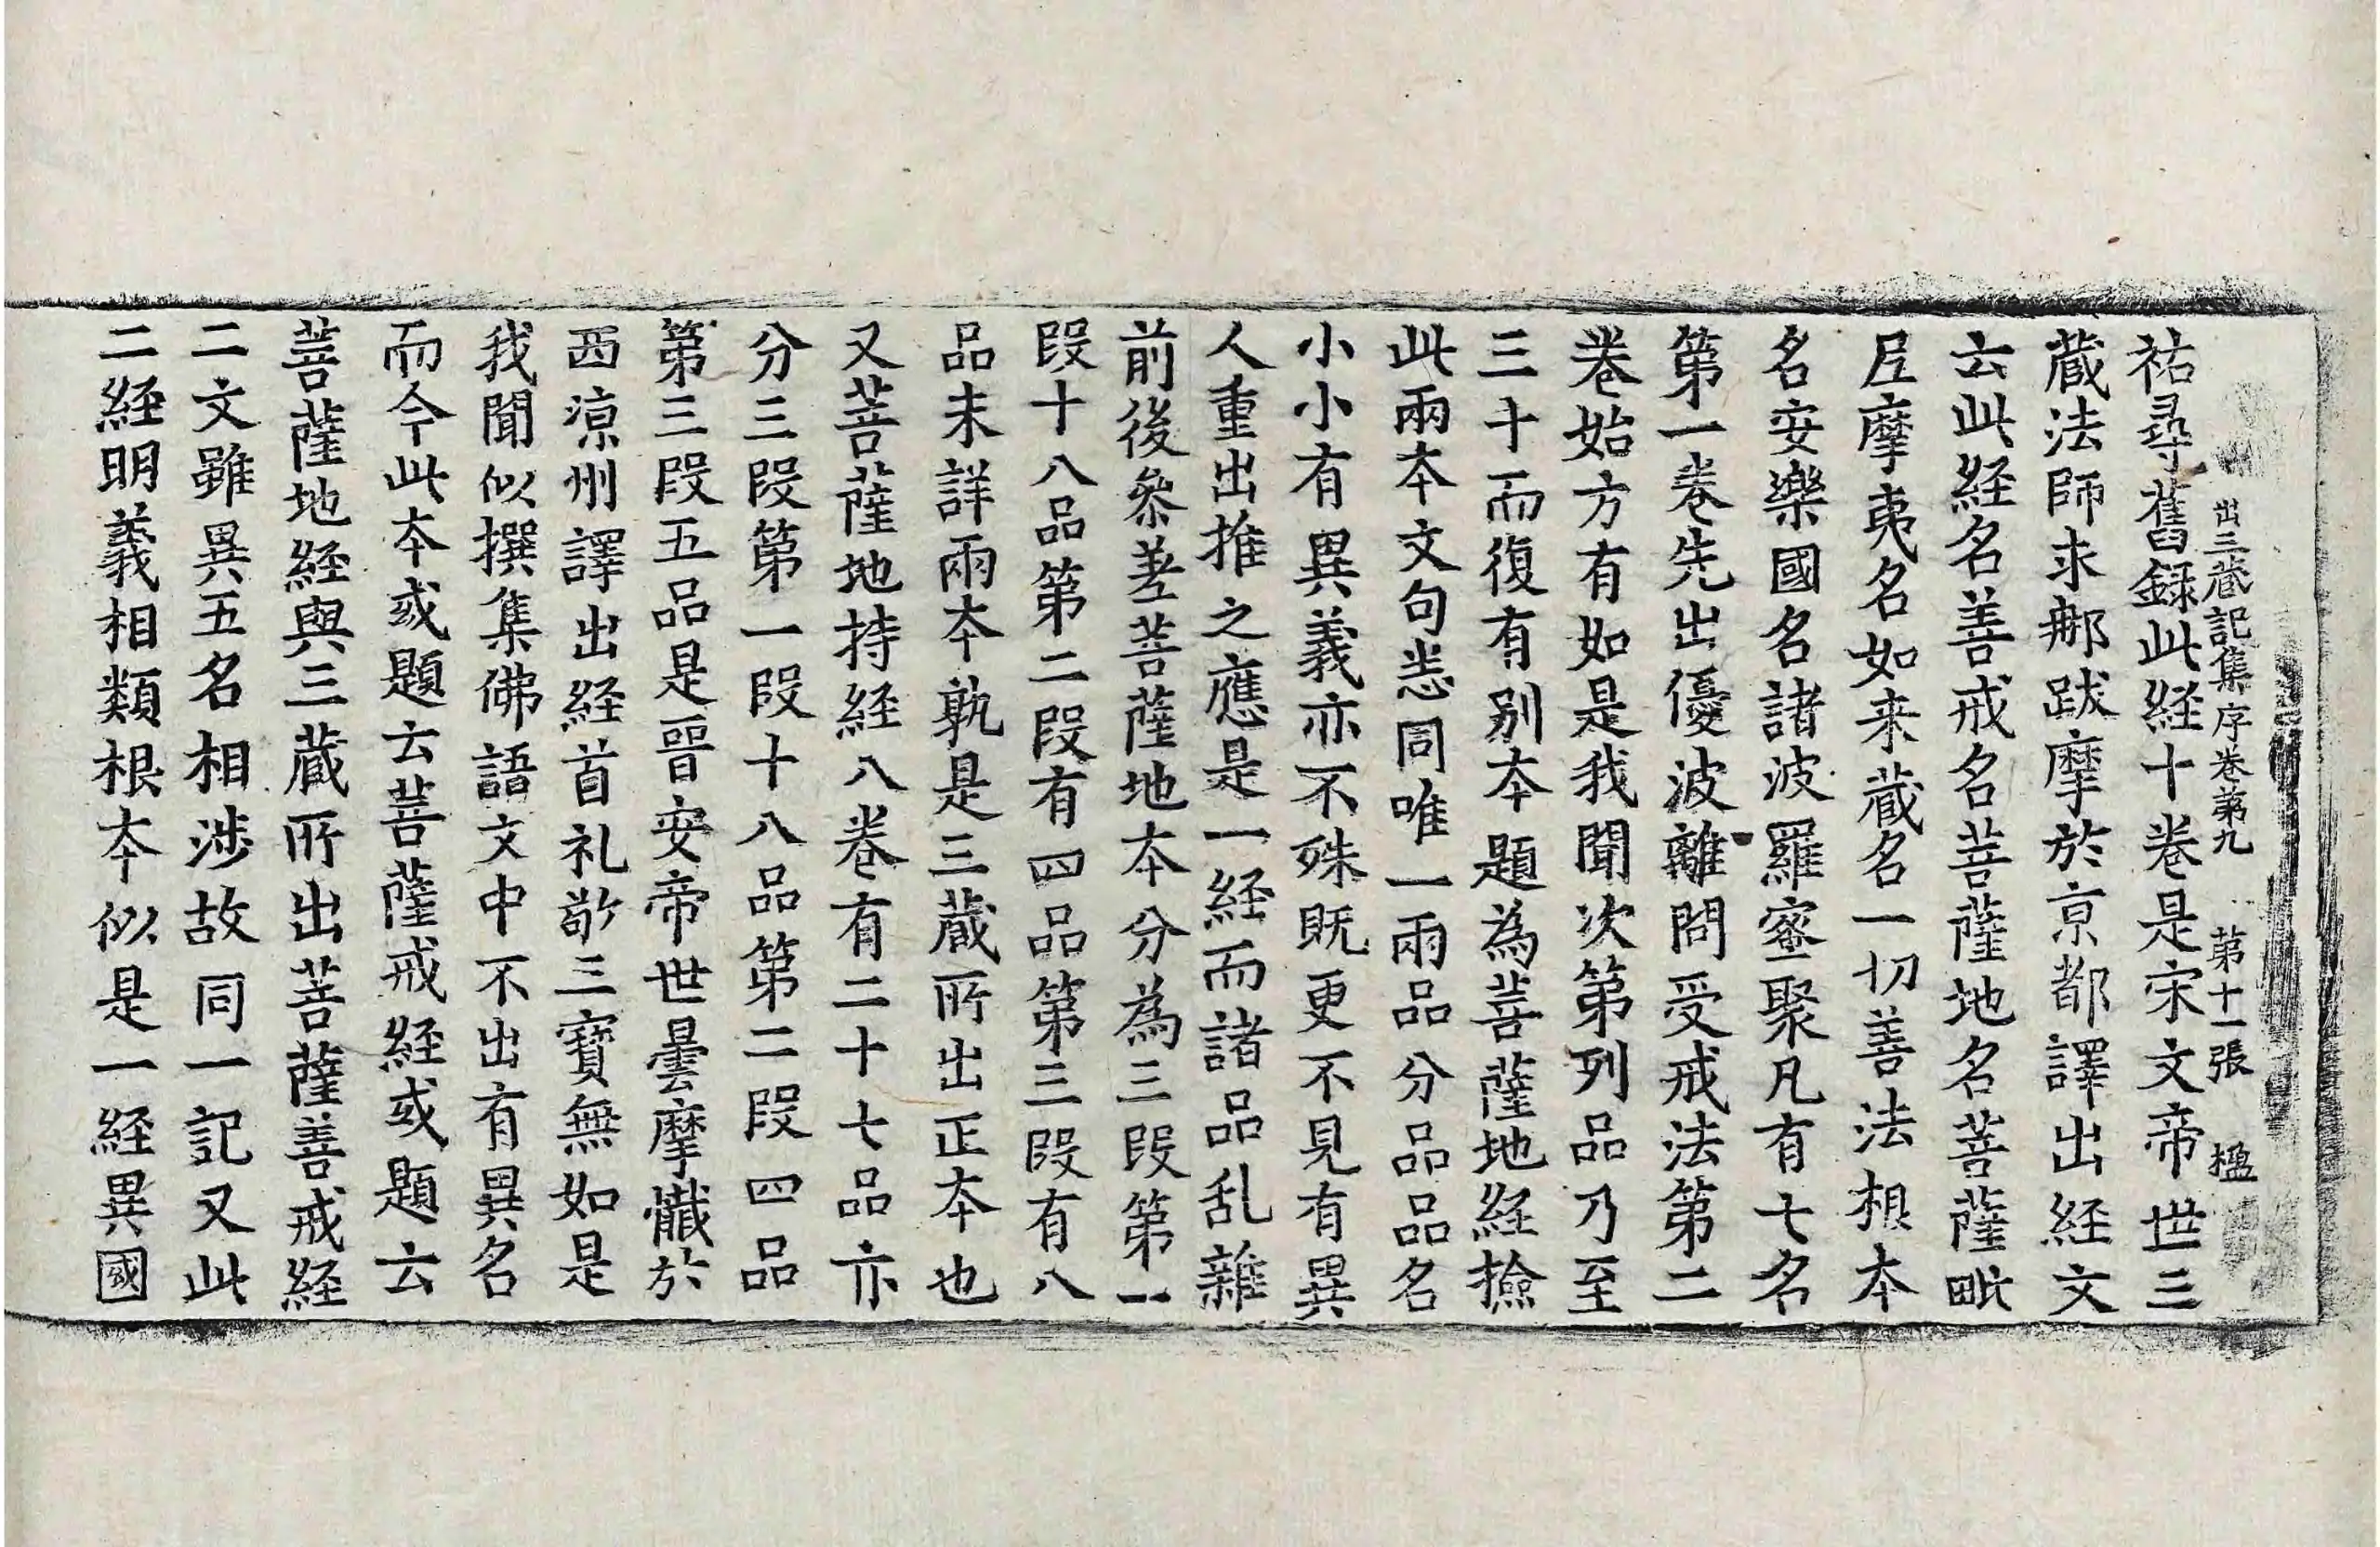 出三蔵記集序卷第九 第十一張 楹
祐尋舊録此経十卷是宋文帝世三
蔵法師求郍跋摩於亰都譯出経文
云此経名善戒名菩薩地名菩薩毗
尼摩夷名如来蔵名一切善法根本
名安樂國名諸波羅蜜聚凡有七名
第一卷先出優波離問受戒法第二
卷始方有如是我聞次第列品乃至
三十而復有别本題為菩薩地経撿
此兩本文句悉同唯一兩品分品品名
小小有異義亦不殊既更不見有異
人重出推之應是一経而諸品乱雜
前後叅差菩薩地本分為三段第一
段十八品第二段有四品第三段有八
品未詳兩本孰是三蔵所出正本也
又菩薩地持経八卷有二十七品亦
分三段第一段十八品第二段四品
第三段五品是晉安帝世曇摩懴於
西涼州譯出経首礼敬三寶無如是
我聞似撰集佛語文中不出有異名
而今此本或題云菩薩戒経或題云
菩薩地経與三蔵所出菩薩善戒経
二文雖異五名相涉故同一記又此
二経明義相類根本似是一経異國